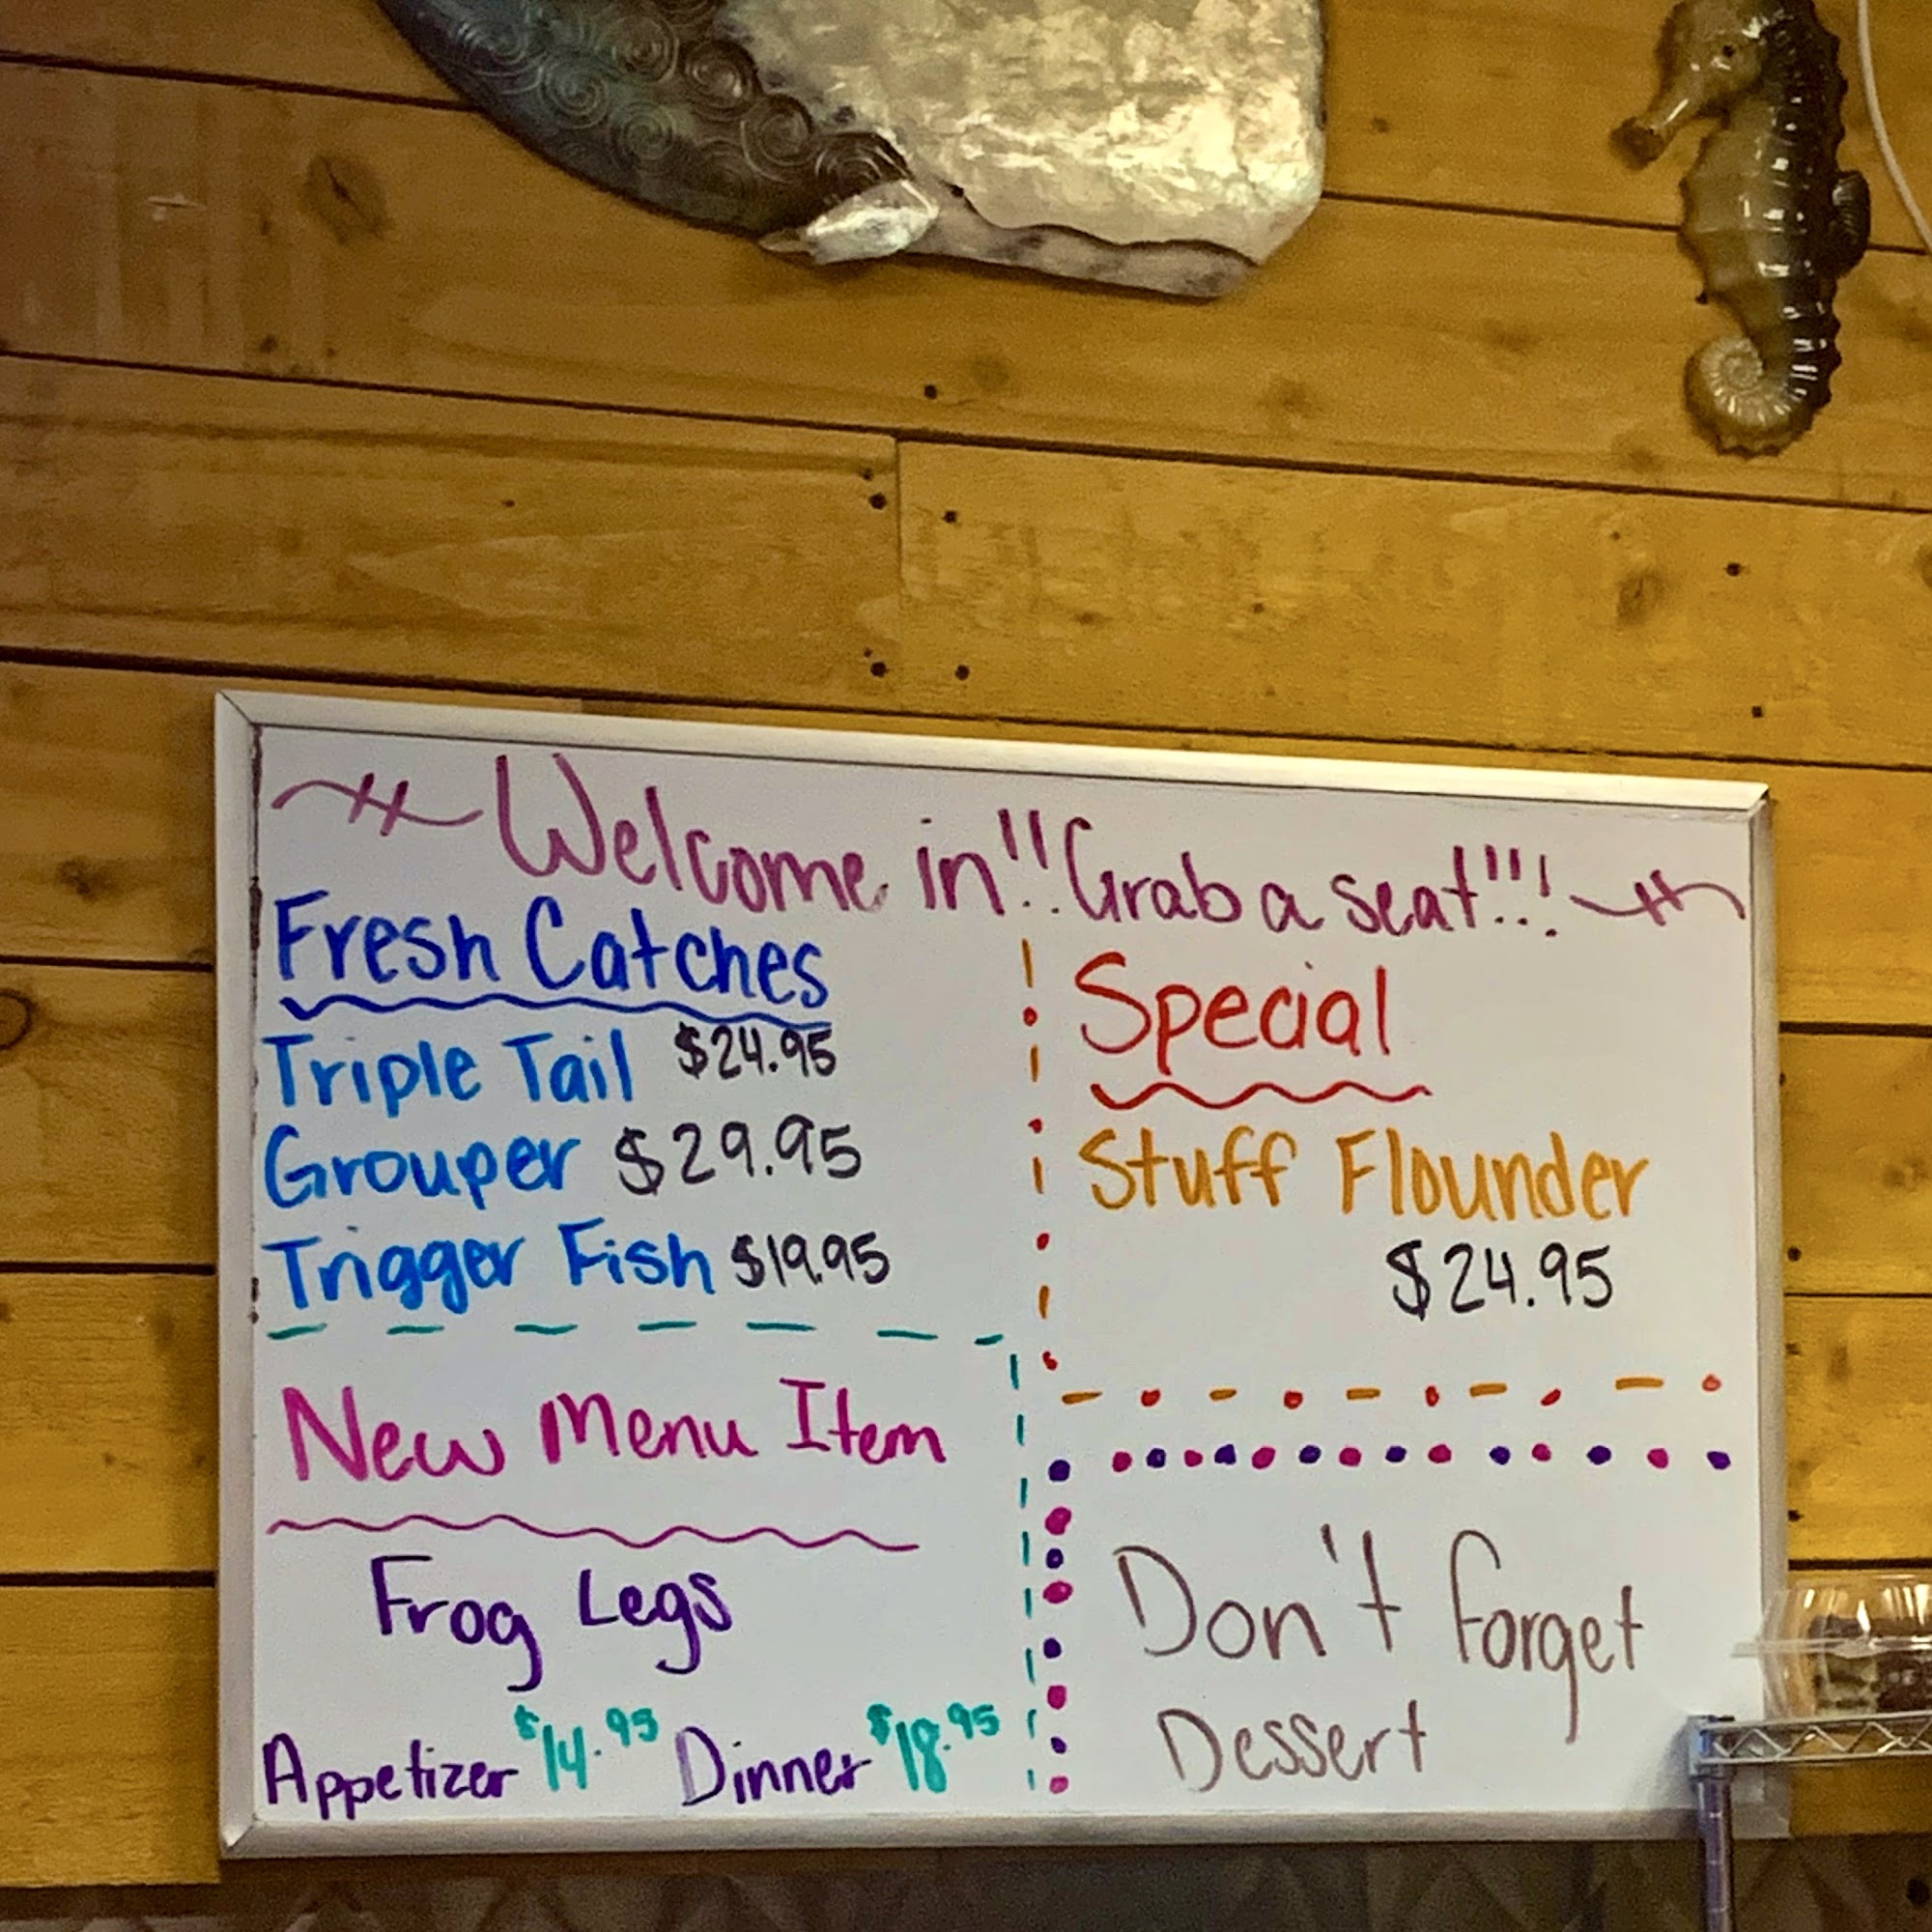 Welcome in!! Grab a seat!!!
Fresh Catches
Triple Tail $24.95
Grouper $29.95
Trigger Fish $19.95
Special
Stuff Flounder
$24.95
New Menu Item
Frog Legs
Appetizer $14.95 Dinner $18.95
Don't forget
Dessert